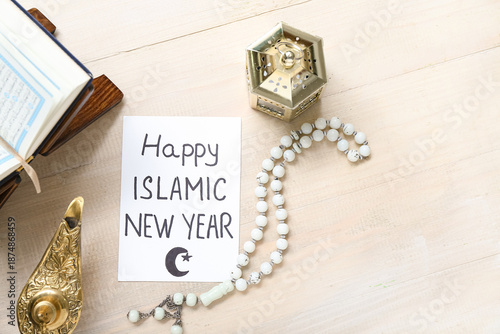 Happy
ISLAMIC
NEW YEAR
Adobe Stock | #1874868459